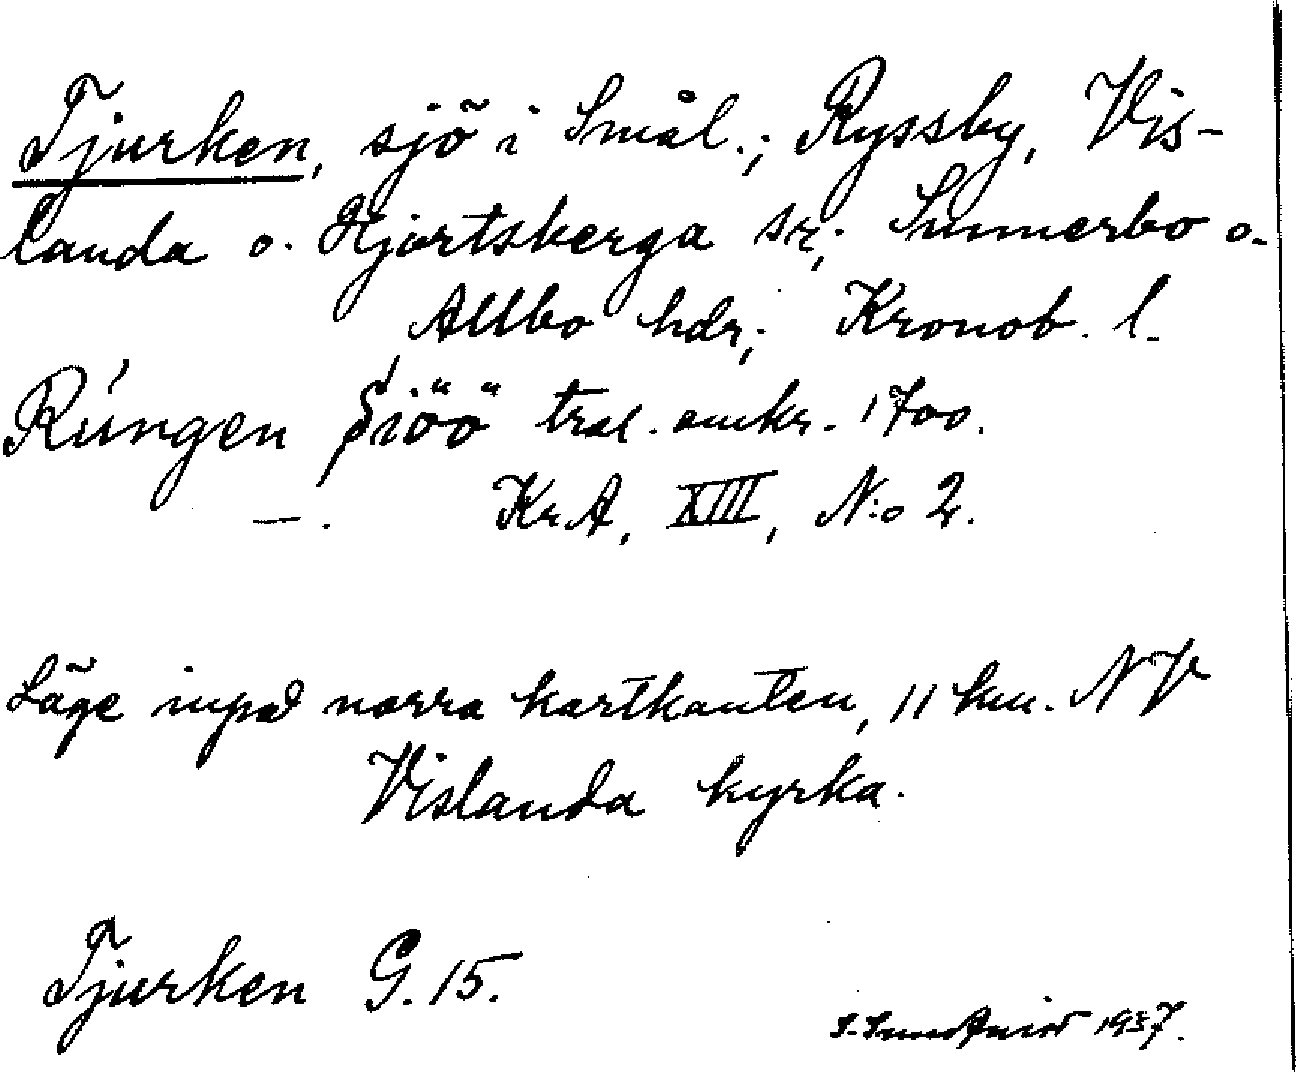 Tjurken, sjö i Smål.; Ryssby, Vis-
landa o. Hjortsberga sr; Sunnerbo o.
Allbo hdr; Kronob. l.
Rúngen Siöö tral. omkr. 1700.
—. KrA, XIII, N:o 2.
Läge inpå norra kartkanten, 11 km. NV
Vislanda kyrka.
Tjurken G. 15.
1937.